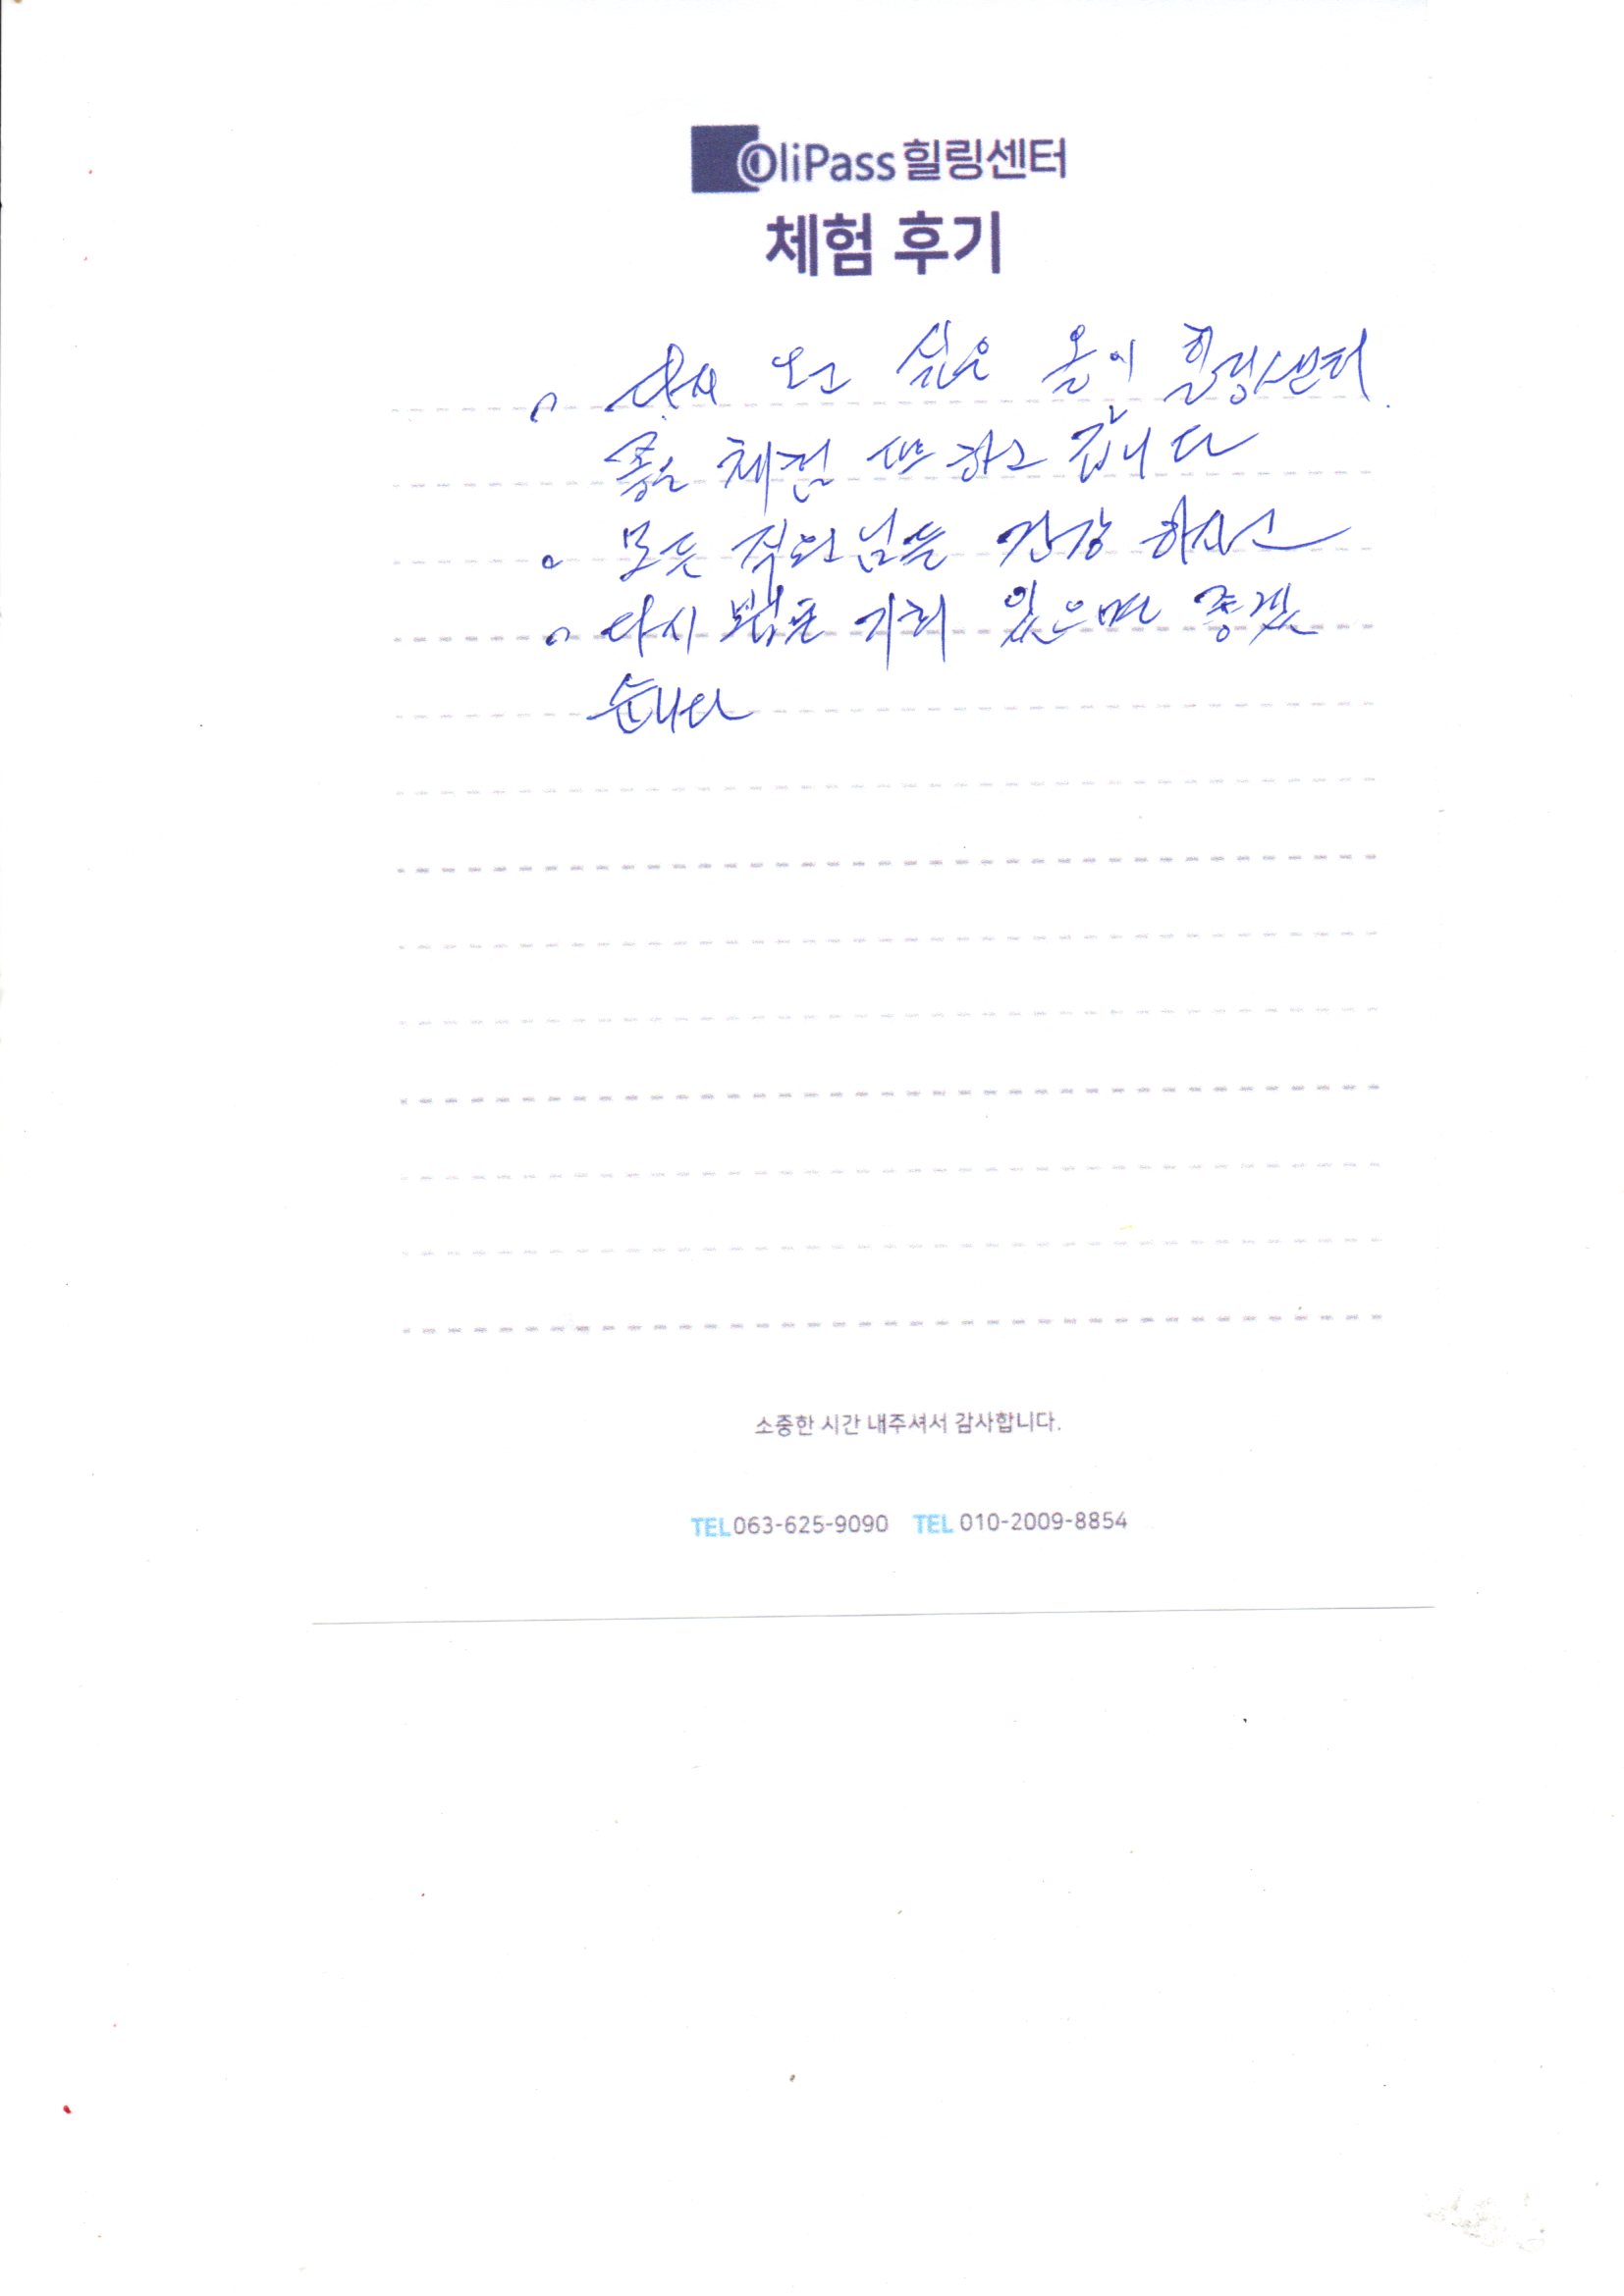 OliPass 힐링센터
체험 후기
다시 오고 싶은 올이 힐링센터.
좋은 체험 하고 갑니다
모든 직원님들 건강 하시고
다시 기회 있으면 좋겠
습니다
소중한 시간 내주셔서 감사합니다.
TEL 063-625-9090 TEL 010-2009-8854